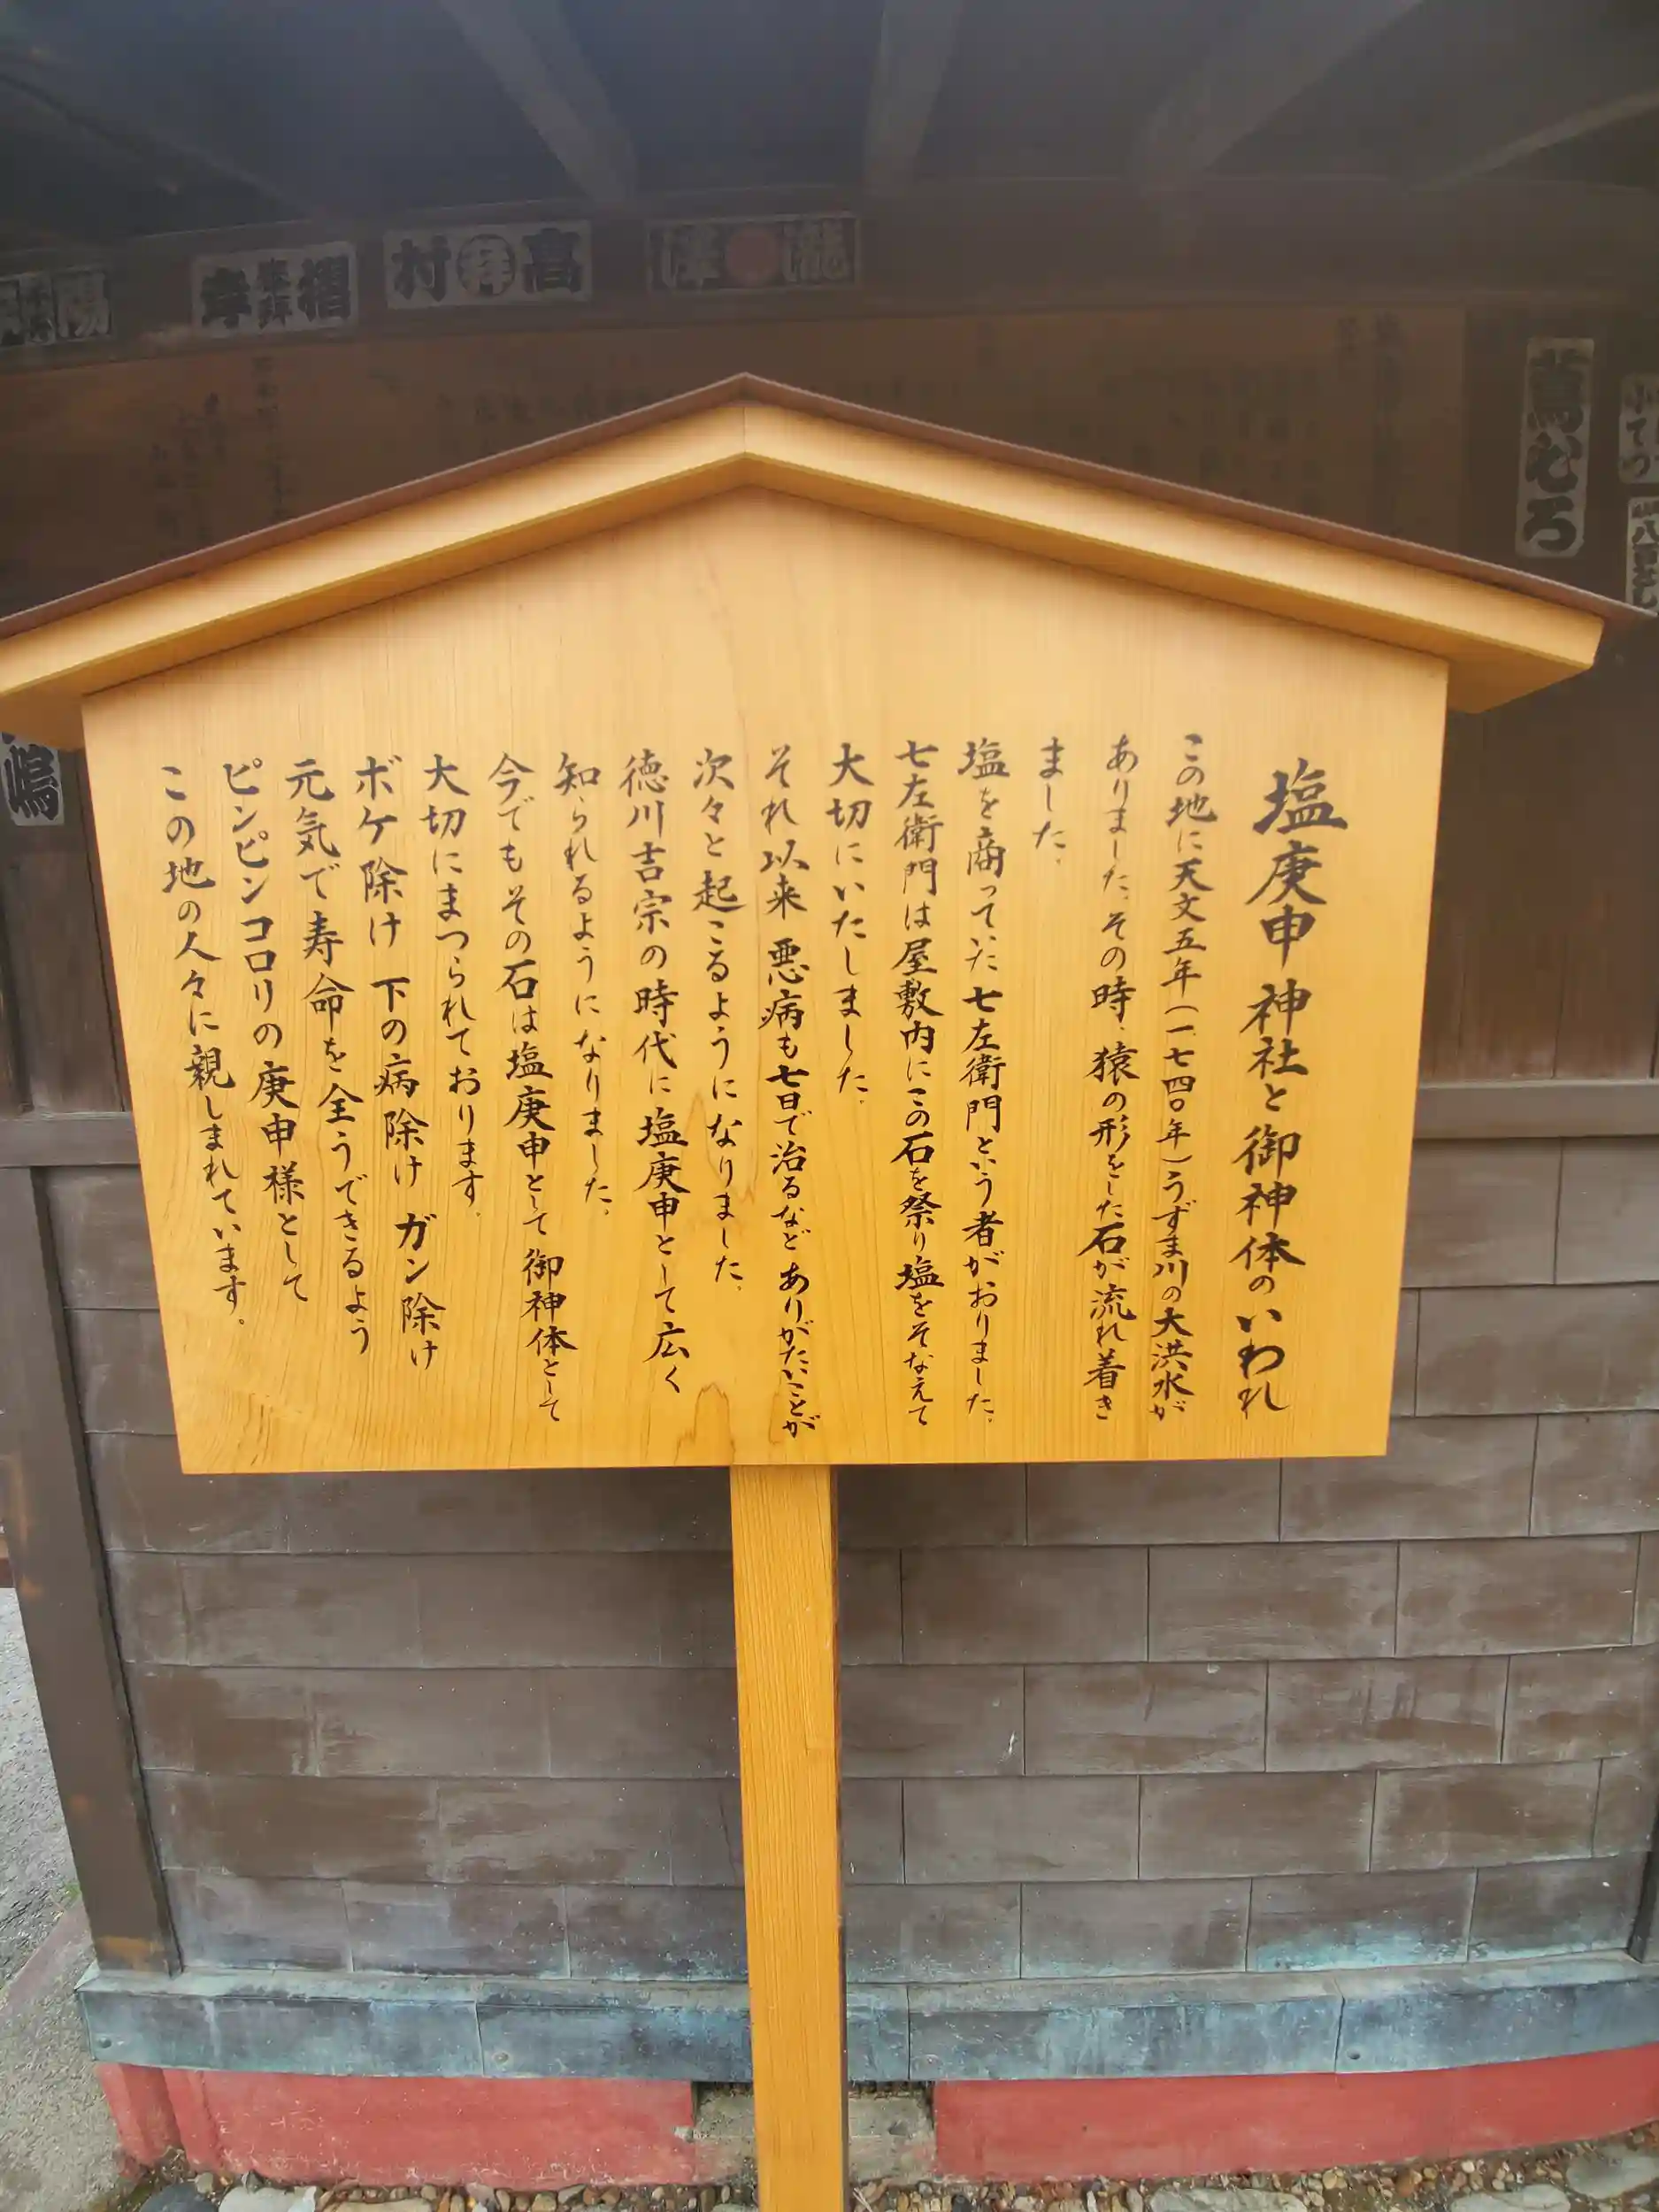 塩庚申神社と御神体のいわれ
この地に天文五年(一七四〇年)うずま川の大洪水が
ありました。その時、猿の形をした石が流れ着き
ました。
塩を商っていた七左衛門という者がおりました。
七左衛門は屋敷内にこの石を祭り塩をそなえて
大切にいたしました。
それ以来 悪病も七日で治るなど ありがたいことが
次々と起こるようになりました。
徳川吉宗の時代に塩庚申として広く
知られるようになりました。
今でもその石は塩庚申として御神体として
大切にまつられております。
ボケ除け 下の病除け ガン除け
元気で寿命を全うできるよう
ピンピンコロリの庚申様として
この地の人々に親しまれています。
瀧 澤
高 拝 村
蔦むろ
嶋